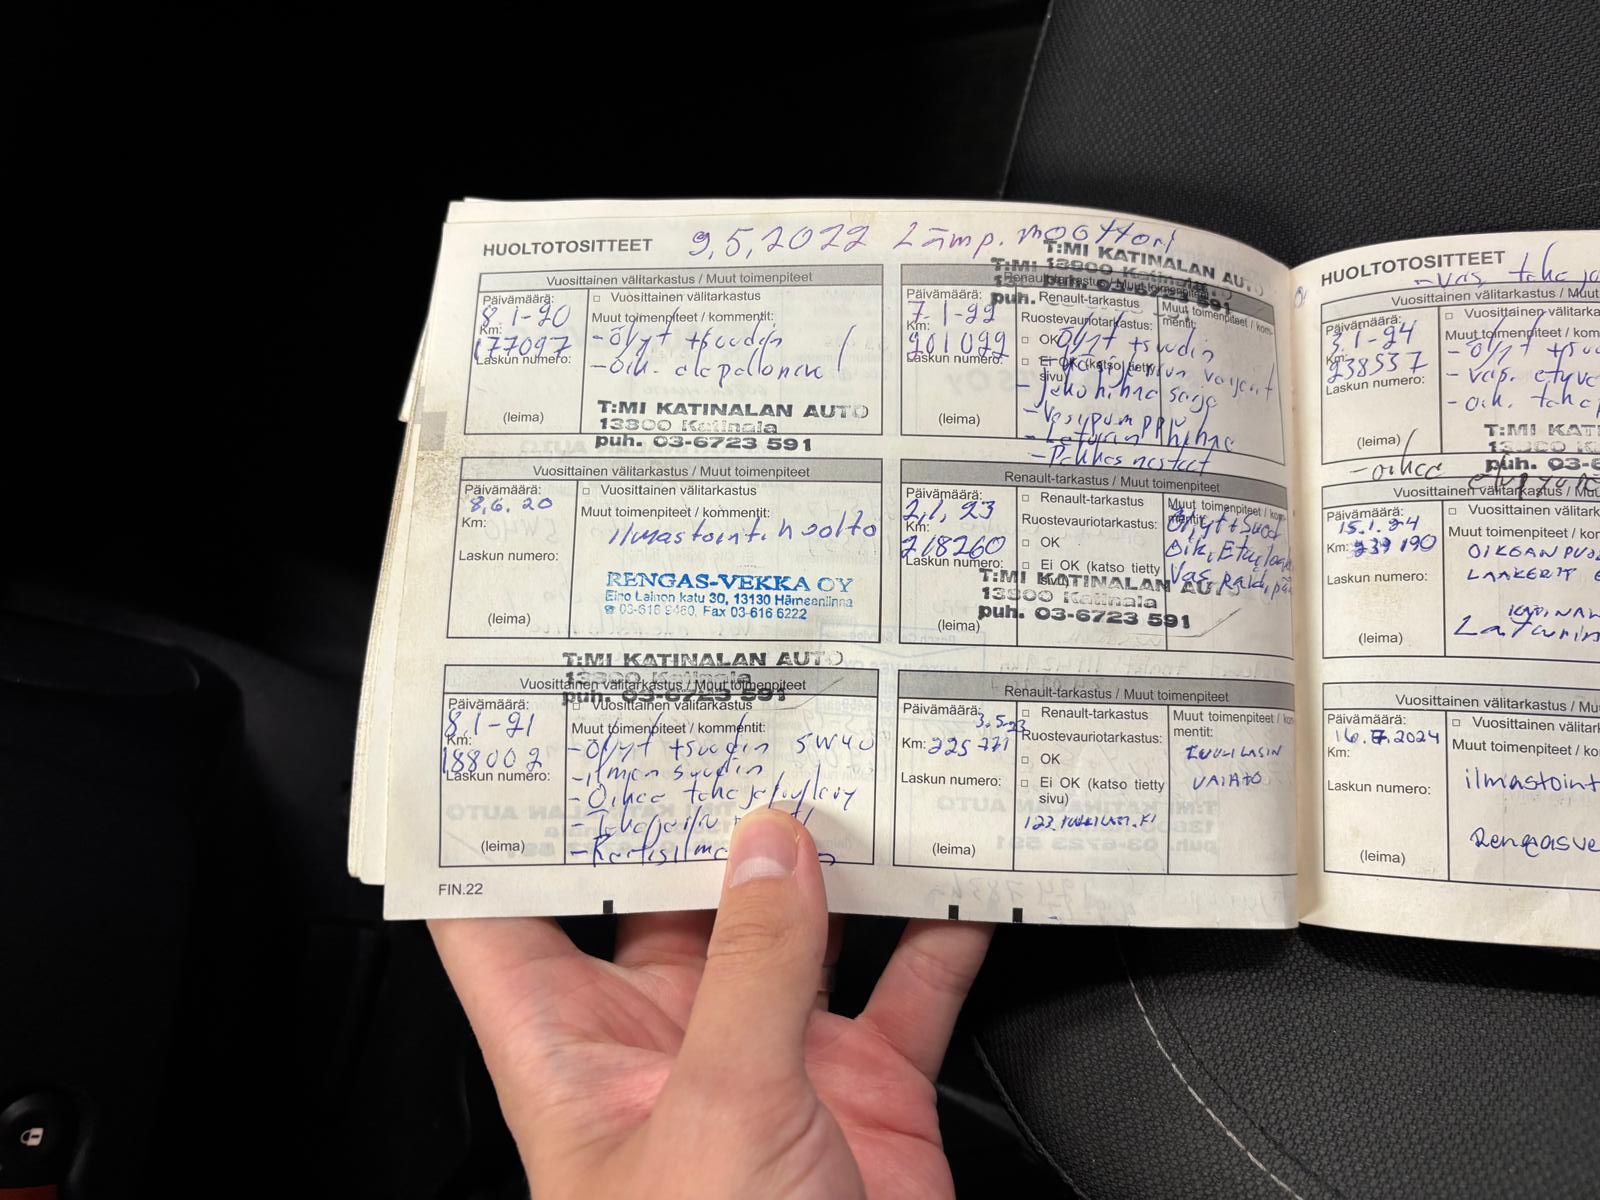 HUOLTOTOSITTEET 9,5,2022 Lämp. moottori
T:MI KATINALAN AUTO
13800 Katinala
puh. 03-6723 591
Vuosittainen välitarkastus / Muut toimenpiteet
Päivämäärä:
8.1-20
Km:
177097
Laskun numero:
(leima)
□ Vuosittainen välitarkastus
Muut toimenpiteet / kommentit:
- Öljyt + suodin
- Oik. alapallonivel
T:MI KATINALAN AUTO
13800 Katinala
puh. 03-6723 591
Vuosittainen välitarkastus / Muut toimenpiteet
Päivämäärä:
8,6.20
Km:
Laskun numero:
(leima)
□ Vuosittainen välitarkastus
Muut toimenpiteet / kommentit:
Ilmastoint. huolto
RENGAS-VEKKA OY
Eino Leinon katu 30, 13130 Hämeenlinna
☎ 03-616 9460, Fax 03-616 6222
T:MI KATINALAN AUTO
13800 Katinala
puh. 03-6723 591
Vuosittainen välitarkastus / Muut toimenpiteet
Päivämäärä:
8.1-21
Km:
188002
Laskun numero:
(leima)
□ Vuosittainen välitarkastus
Muut toimenpiteet / kommentit:
- Öljyt + suodin 5W40
- Ilman suodin
- Oikea taka
FIN.22
Renault-tarkastus / Muut toimenpiteet
Päivämäärä:
7.1-22
Km:
201022
Laskun numero:
(leima)
□ Renault-tarkastus
Ruostevauriotarkastus:
□ OK
□ Ei OK (katso tietty
sivu)
Muut toimenpiteet / kom-
mentit:
Öljyt + suodin
- Jakohihna sarja
- Vesipumppu
- Laturin hihna
- Pakkasnesteet
Renault-tarkastus / Muut toimenpiteet
Päivämäärä:
2,1,23
Km:
218260
Laskun numero:
(leima)
□ Renault-tarkastus
Ruostevauriotarkastus:
□ OK
□ Ei OK (katso tietty
Muut toimenpiteet / kom-
mentit:
Öljyt + Suod
Oik,
Vas
T:MI KATINALAN AUTO
13800 Katinala
puh. 03-6723 591
Renault-tarkastus / Muut toimenpiteet
Päivämäärä:
3.5-23
Km: 225 771
Laskun numero:
(leima)
□ Renault-tarkastus
Ruostevauriotarkastus:
□ OK
□ Ei OK (katso tietty
sivu)
Muut toimenpiteet / kom-
mentit:
TUULILASIN
VAIHTO
HUOLTOTOSITTEET
- Vas taka
Päivämäärä:
3.1-24
Km:
238537
Laskun numero:
(leima)
□ Vuosittainen välitarka
Muut toimenpiteet / ko
- Öljyt + su
- Oik. taka
T:MI KAT
puh. 03-6
- oikea
Vuosittainen välitarkastus / Muu
Päivämäärä:
15.1.24
Km: 239190
Laskun numero:
(leima)
□ Vuosittainen välitarka
Muut toimenpiteet / ko
OIKEAN
LAAKERIT
Laturin
Vuosittainen välitarkastus / Mu
Päivämäärä:
16.7.2024
Km:
Laskun numero:
(leima)
□ Vuosittainen välitark
Muut toimenpiteet / ko
ilmastoint
Rengasve